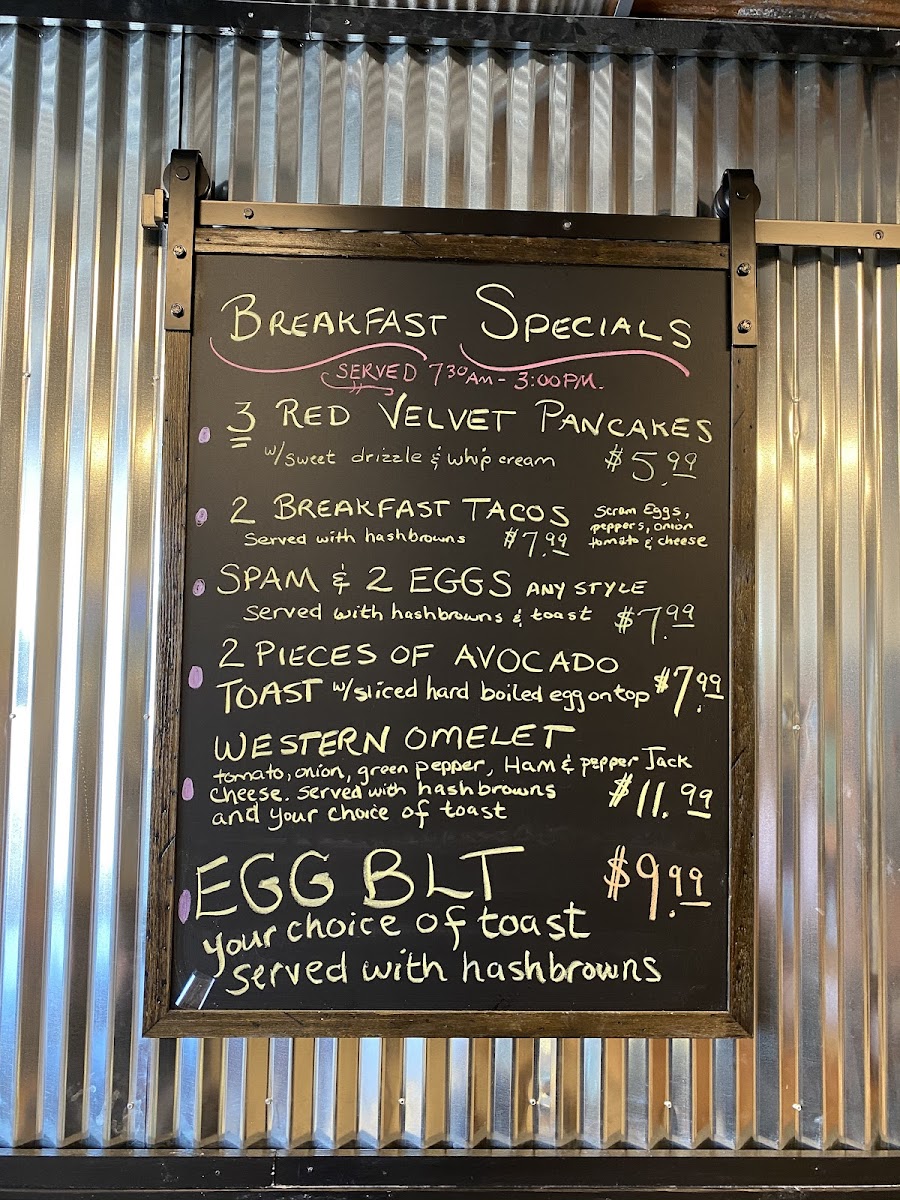 BREAKFAST SPECIALS
SERVED 7 30 AM - 3:00 PM.
3 RED VELVET PANCAKES
w/sweet drizzle & whip cream $5.99
2 BREAKFAST TACOS
Scram Eggs,
peppers, onion
tomato & cheese
Served with hashbrowns $7.99
SPAM & 2 EGGS ANY STYLE
Served with hashbrowns & toast $7.99
2 PIECES OF AVOCADO
TOAST w/sliced hard boiled egg on top $7.99
WESTERN OMELET
tomato, onion, green pepper, Ham & pepper Jack
cheese. Served with hashbrowns $11.99
and your choice of toast
EGG BLT $9.99
your choice of toast
served with hashbrowns